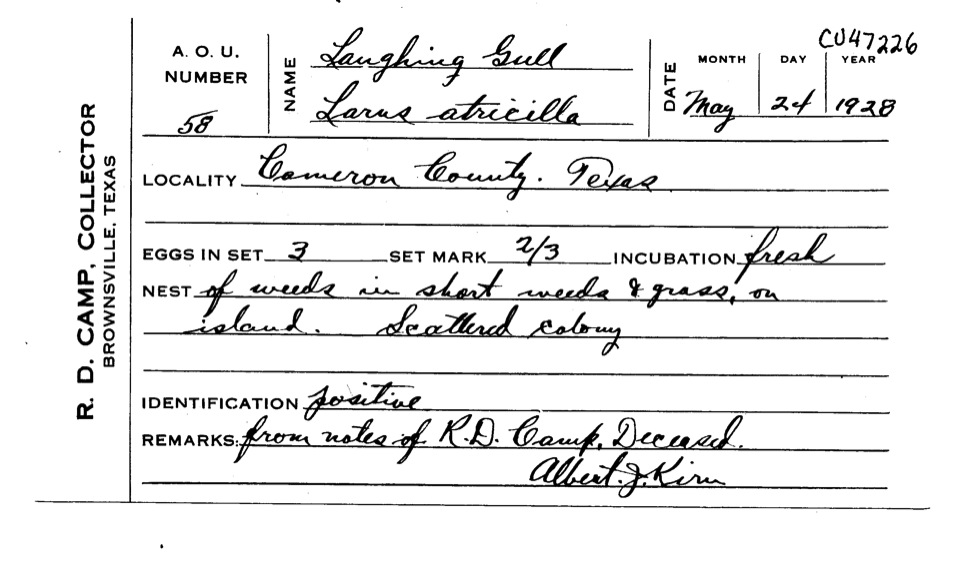 CU47226
A. O. U. NUMBER 58
NAME Laughing Gull
Larus atricilla
DATE MONTH May DAY 24 YEAR 1928
R. D. CAMP, COLLECTOR
BROWNSVILLE, TEXAS
LOCALITY Cameron County. Texas
EGGS IN SET 3 SET MARK 2/3 INCUBATION fresh
NEST of weeds in short weeds & grass, on
island. Scattered colony
IDENTIFICATION positive
REMARKS: from notes of R.D. Camp, Deceased.
Albert. J. Kirn